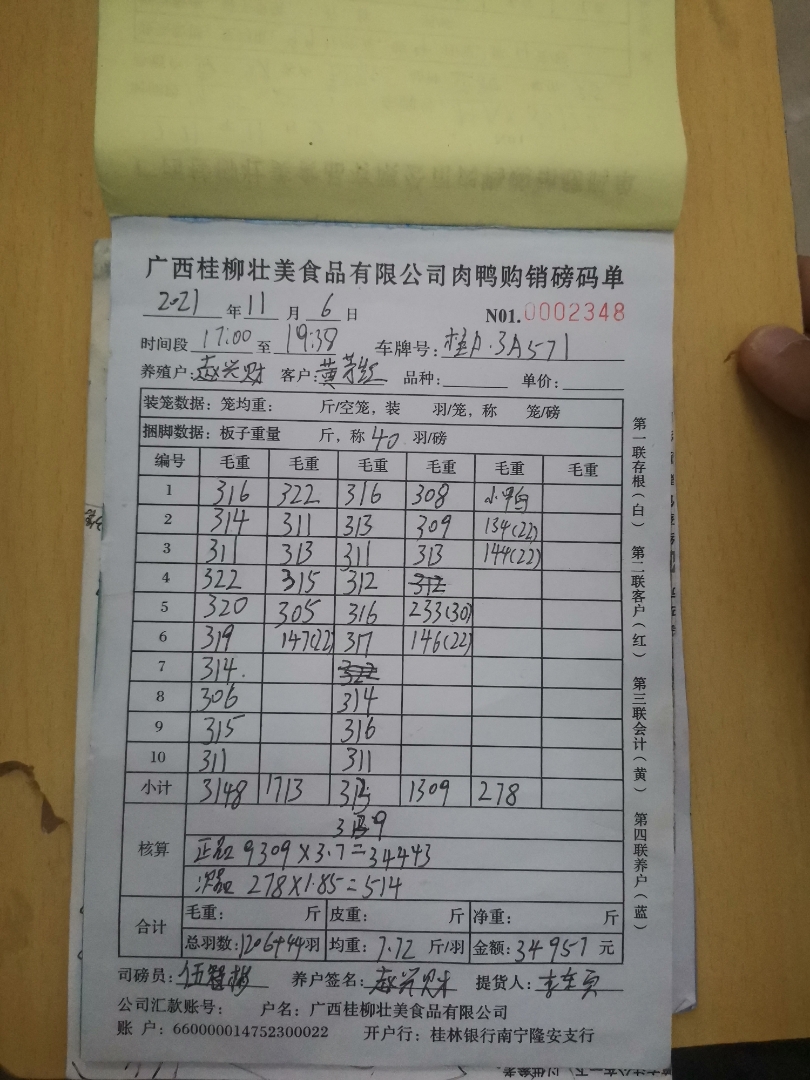 广西桂柳壮美食品有限公司肉鸭购销磅码单
2021年11月6日 N01.0002348
时间段 17:00 至 19:38 车牌号：桂A·3A571
养殖户：赵兴财 客户：黄 品种： 单价：
装笼数据：笼均重： 斤/空笼，装 羽/笼，称 笼/磅
捆脚数据：板子重量 斤，称 40 羽/磅
编号 毛重 毛重 毛重 毛重 毛重 毛重
1 316 322 316 308
2 314 311 313 309 134(22)
3 311 313 311 313 144(22)
4 322 315 312 312
5 320 305 316 233(30)
6 319 147(22) 317 146(22)
7 314. 322
8 306 314
9 315 316
10 311 311
小计 3148 1713 1309 278
核算
正品 9309×3.7=34443
次品 278×1.85=514
合计 毛重： 斤 皮重： 斤 净重： 斤
总羽数：1206+44羽 均重：7.72 斤/羽 金额：34957 元
司磅员：伍智彬 养户签名：赵兴财 提货人：
公司汇款账号： 户名：广西桂柳壮美食品有限公司
账 户：660000014752300022 开户行：桂林银行南宁隆安支行
第一联存根（白） 第二联客户（红） 第三联会计（黄） 第四联养户（蓝）